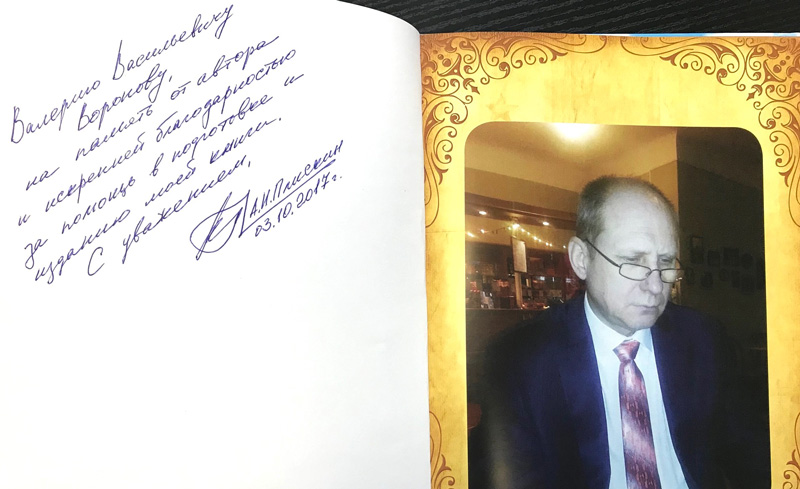 Валерию Васильевичу
Воронову,
на память от автора
и искренней благодарностью
за помощь в подготовке и
изданию моей книги.
С уважением,
А.Н.Плискин
03.10.2017г.